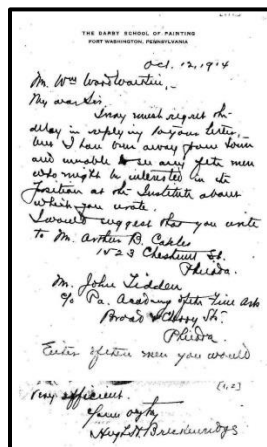 THE DARBY SCHOOL OF PAINTING
FORT WASHINGTON, PENNSYLVANIA
Oct. 12, 1914
Mr. Wm Woodward,
My dear Sir,
I very much regret the
delay in replying to your letter,
but I have been away from town
and unable to see any of the men
who might be interested in the
position at the Institute about
which you wrote.
I would suggest that you write
to Mr. Arthur B. Carles
1523 Chestnut St.
Philada.
Mr. John
c/o Pa. Academy of the Fine Arts
Broad & Cherry Sts.
Philada.
Either of these men you would
[1,2]
very efficient.
Yours
Hugh H. Breckenridge